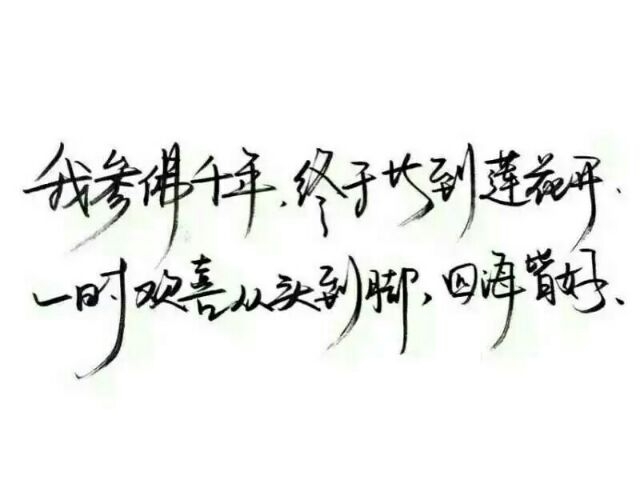 我参佛千年、终于等到莲花开、
一时欢喜从头到脚，四海皆好、